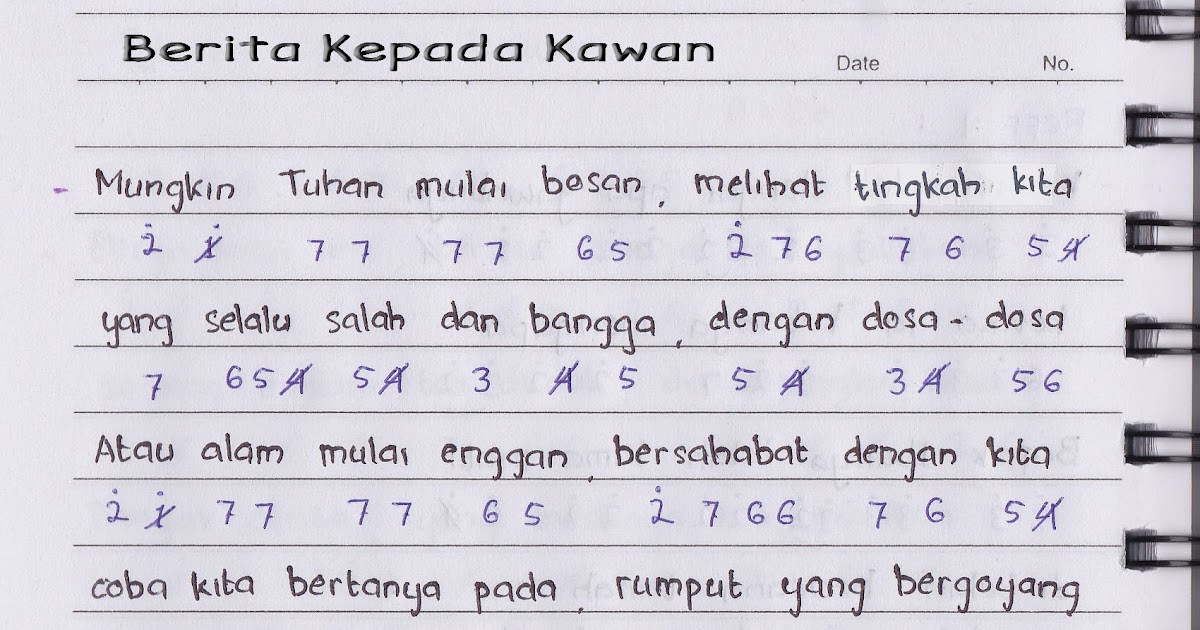 Berita Kepada Kawan
Date No.
- Mungkin Tuhan mulai bosan, melihat tingkah kita
2̇ 1̸̇ 7 7 7 7 6 5 2̇ 7 6 7 6 5 4̸
yang selalu salah dan bangga, dengan dosa - dosa
7 6 5 4̸ 5 4̸ 3 4̸ 5 5 4̸ 3 4̸ 5 6
Atau alam mulai enggan, bersahabat dengan kita
2̇ 1̸̇ 7 7 7 7 6 5 2̇ 7 6 6 7 6 5 4̸
coba kita bertanya pada, rumput yang bergoyang